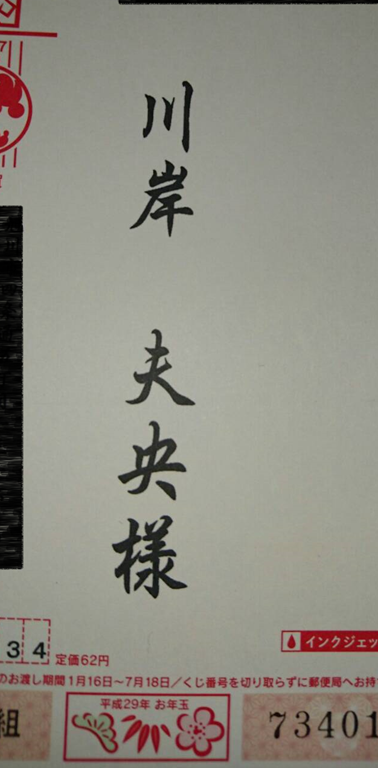 川岸 夫央様
34
定価62円
インクジェッ
のお渡し期間1月16日〜7月18日／くじ番号を切り取らずに郵便局へお持
組
平成29年 お年玉
73401